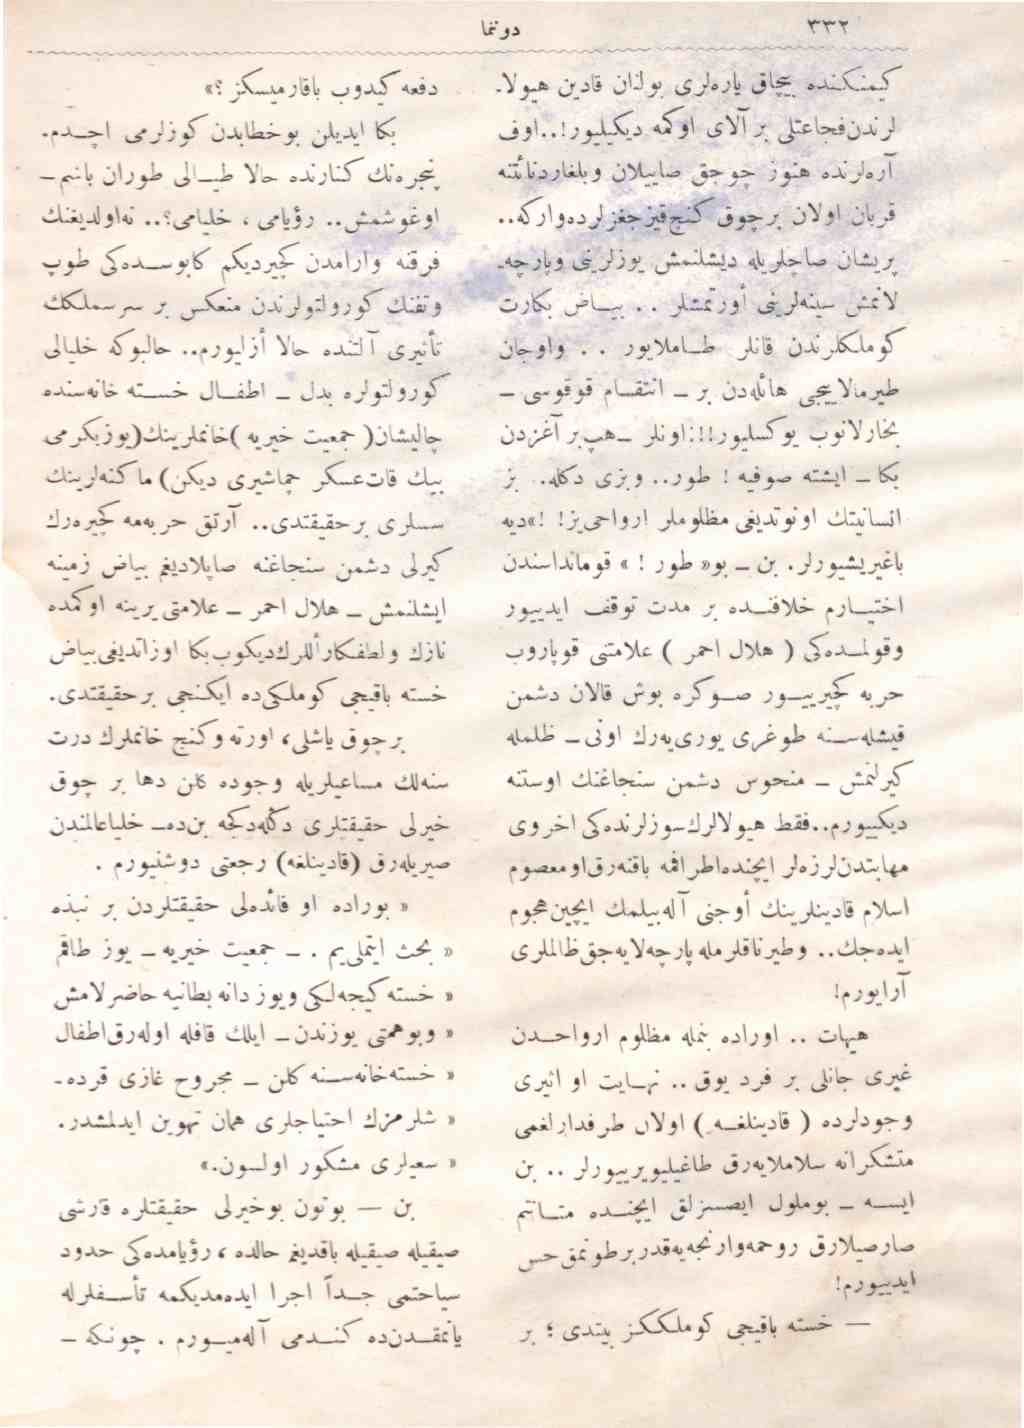 ٣٣٢
دوتنما
كيمنكنده بيچاق ياره‌لرى بولنان قادين هيولا-
لرندن فجاعتلى بر آلاى اوكمه ديكيليور!..اوف
آره‌لرنده هنوز چوجق صاييلان وبلغاردنائتنه
قربان اولان برچوق كنج قيزجغزلرده واركه..
پريشان صاچلريله ديشلنمش يوزلرينى وپارچه-
لانمش سينه‌لرينى أورتمشلر . . بيـاض بكارت
كوملكلرندن قانلر طـاملايور . . واوجان
طيرمالاييجى هائله‌دن بر ـ انتقـام قوقوسى ـ
بخارلانوب يوكسليور!!!:اونلر ـ هپ بر آغزدن
بكا ـ ايشته صوفيه ! طور.. وبزى دكله. بز
انسانيتك اونوتديغى مظلوملر ارواحى‌يز! !»ديه
باغيريشيورلر. بن ـ بو« طور ! » قومانداسندن
اختيـارم خلافنـده بر مدت توقف ايدييور
وقولمـده‌كى ( هلال احمر ) علامتنى قوپاروب
حربه كچيرييـور صـوكره بوش قالان دشمن
قيشله‌سـنه طوغرى يورى‌يه‌رك اونى ـ ظلمله
كيرلنمش ـ منحوس دشمن سنجاغنك اوستنه
ديكييورم..فقط هيولالرك سوزلرنده‌كى اخروى
مهابتدن لرزه‌لر ايچنده اطرافمه باقنه‌رق او معصوم
اسلام قادينلرينك أوجنى آله‌بيلمك ايچين هجوم
ايده‌جك.. وطيرناقلرمله پارچه‌لايه‌جق ظالملرى
آرايورم!
هيهات .. اوراده بنمله مظلوم ارواحـدن
غيرى جانلى بر فرد يوق .. نهـايت او اثيرى
وجودلرده ( قادينلغـه ) اولان طرفدارلغمى
متشكرانه سلاملايه‌رق طاغيليويرييورلر .. بن
ايسـه ـ بوملول ايصسزلق ايچنـده متـانتم
صارصيلارق روحمه وارنجه‌يه‌قدر بر طونمق حس
ايدييورم!
— خسته باقيجى كوملككز بيتدى ؛ بر
دفعه كيدوب باقارميسكز ؟»
بكا ايديلن بوخطابدن كوزلرمى اچـدم.
پنجره‌نك كنارنده حالا طيـالى طوران باشم ـ
اوغوشمش.. رؤيامى ، خليامى؟.. نه‌اولديغنك
فرقنه وارامدن كچيرديكم كابوسـده‌كى طوپ
وتفنك كورولتولرندن منعكس بر سرسملكك
تأثيرى آلتنده حالا أزليورم.. حالبوكه خليالى
كورولتولره بدل ـ اطفـال خسـته خانه‌سنده
چاليشان( جمعيت خيريه )خانملرينك(يوزيكرمى
بيك قات عسكر چماشيرى ديكن) ماكنه‌لرينك
سسلرى بر حقيقتدى.. آرتق حربه‌مه كچيره‌رك
كيرلى دشمن سنجاغنه صاپلاديغم بياض زمينه
ايشلنمش ـ هلال احمر ـ علامتى يرينه اوكمده
نازك ولطفكار أللرك ديكوب بكا اوزاتديغى بياض
خسته باقيجى كوملكى‌ده ايكنجى بر حقيقتدى.
برچوق ياشلى، اورته وكنج خانملرك درت
سنه‌لك مساعيلريله وجوده كلن دها بر چوق
خيرلى حقيقتلرى دكله‌دكجه بن‌ده ـ خلياعالمندن
صيريله‌رق (قادينلغه) رجعتى دوشنيورم .
« بوراده او فائده‌لى حقيقتلردن بر نبذه
« بحث ايتملى‌يم . ـ جمعيت خيريه ـ يوز طاقم
« خسته كيجه‌لكى ويوز دانه بطانيه حاضرلامش
« وبوهمتى يوزندن ـ ايلك قافله اوله‌رق اطفال
« خسته‌خانه‌سـنه كلن ـ مجروح غازى قرده-
« شلرمزك احتياجلرى همان تهوين ايدلمشدر.
« سعيلرى مشكور اولسون.»
بن — بوتون بوخيرلى حقيقتلره قارشى
صيقيله صيقيله باقديغم حالده ، رؤيامده‌كى حدود
سياحتمى جـداً اجرا ايده‌مديكمه تأسـفلرله
يانمقـدن‌ده كنـدمى آله‌ميـورم . چونكه ـ